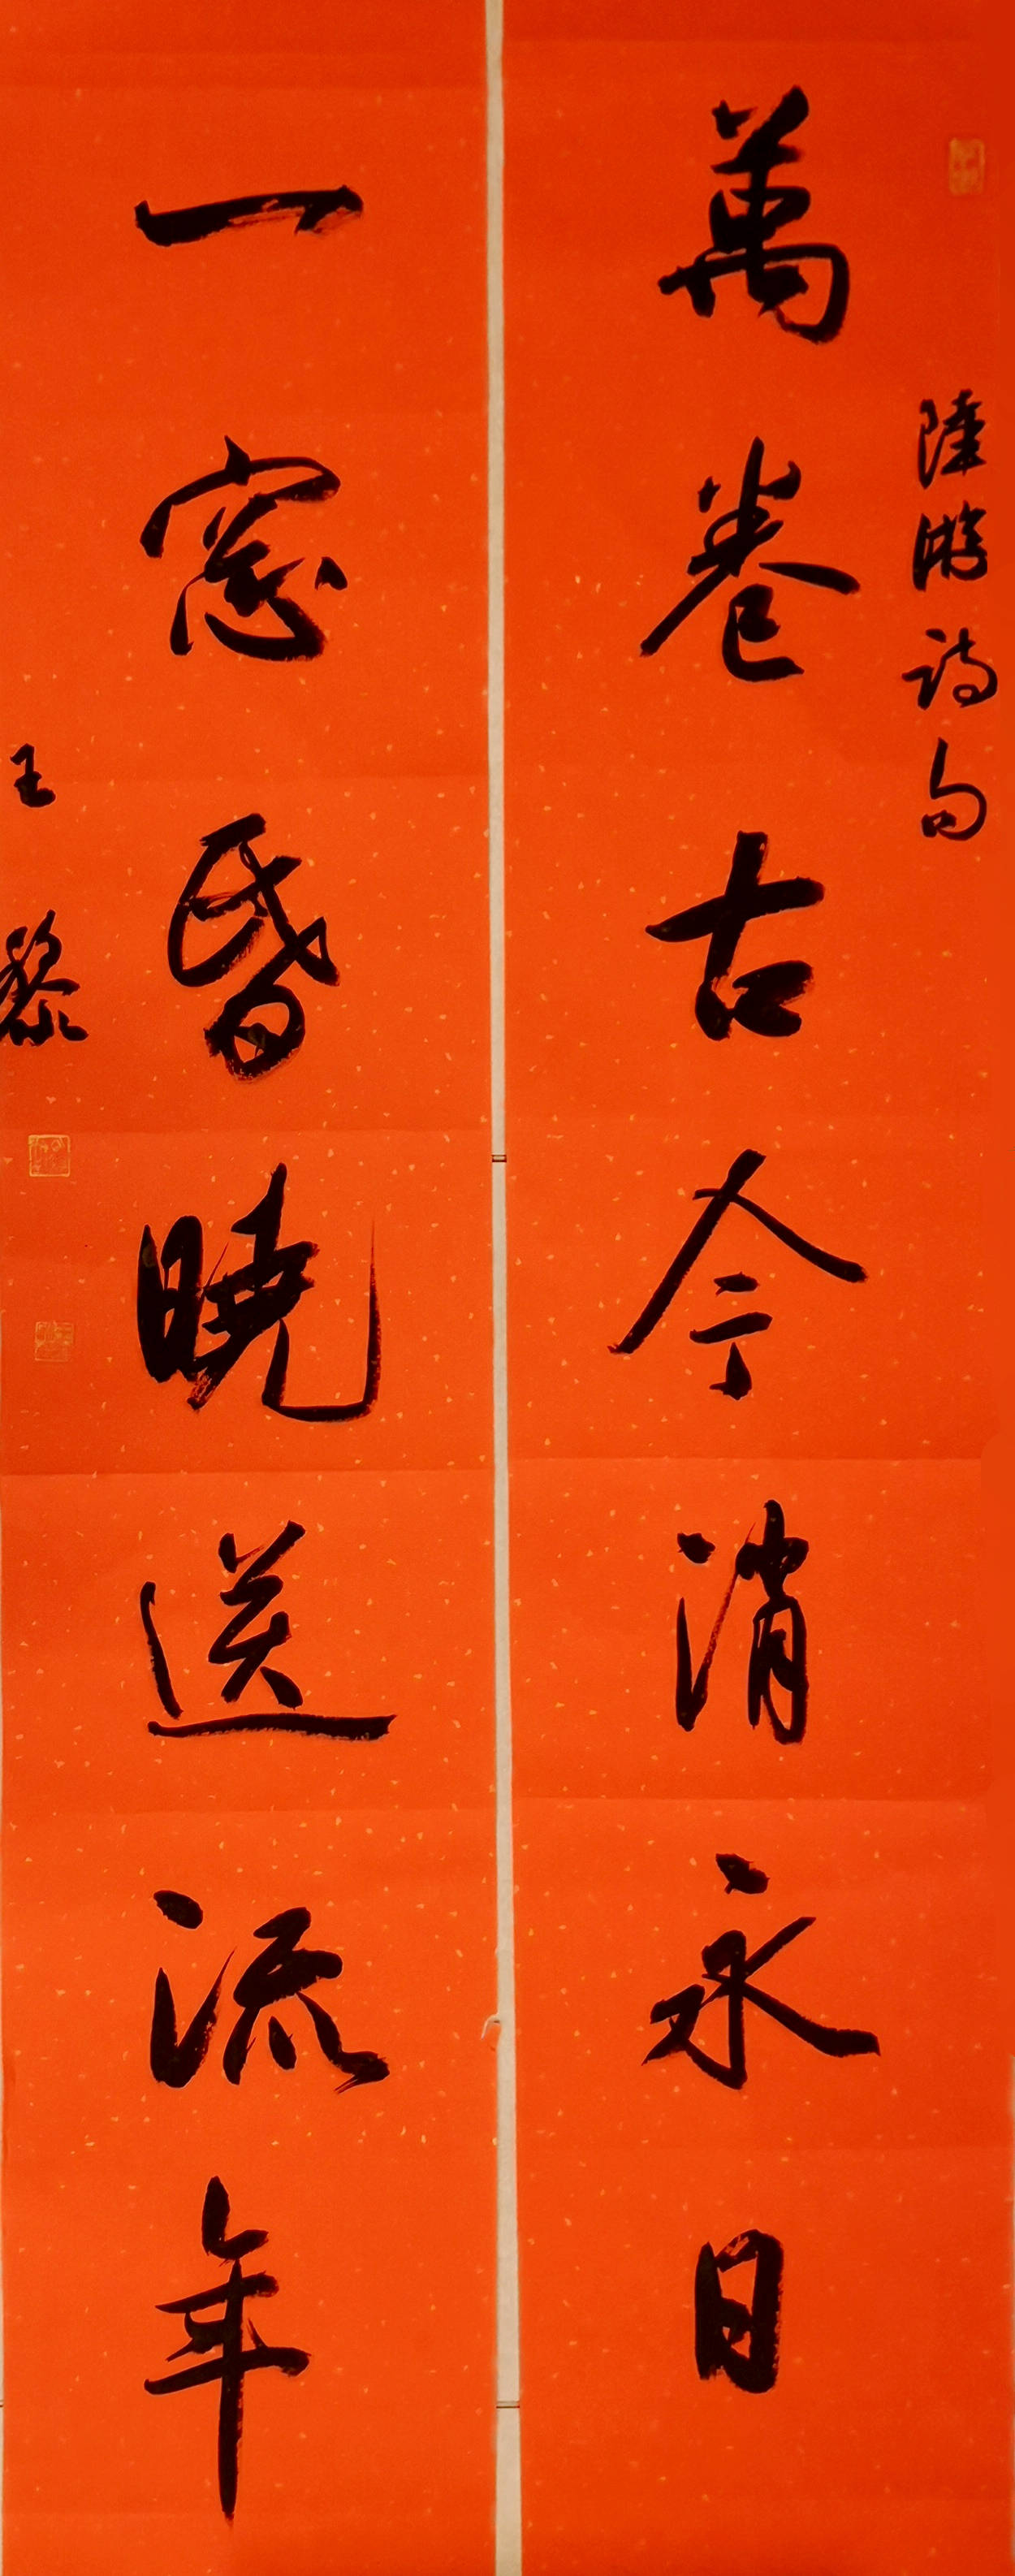 陸游詩句
萬卷古今消永日
一窓昏曉送流年
王黎